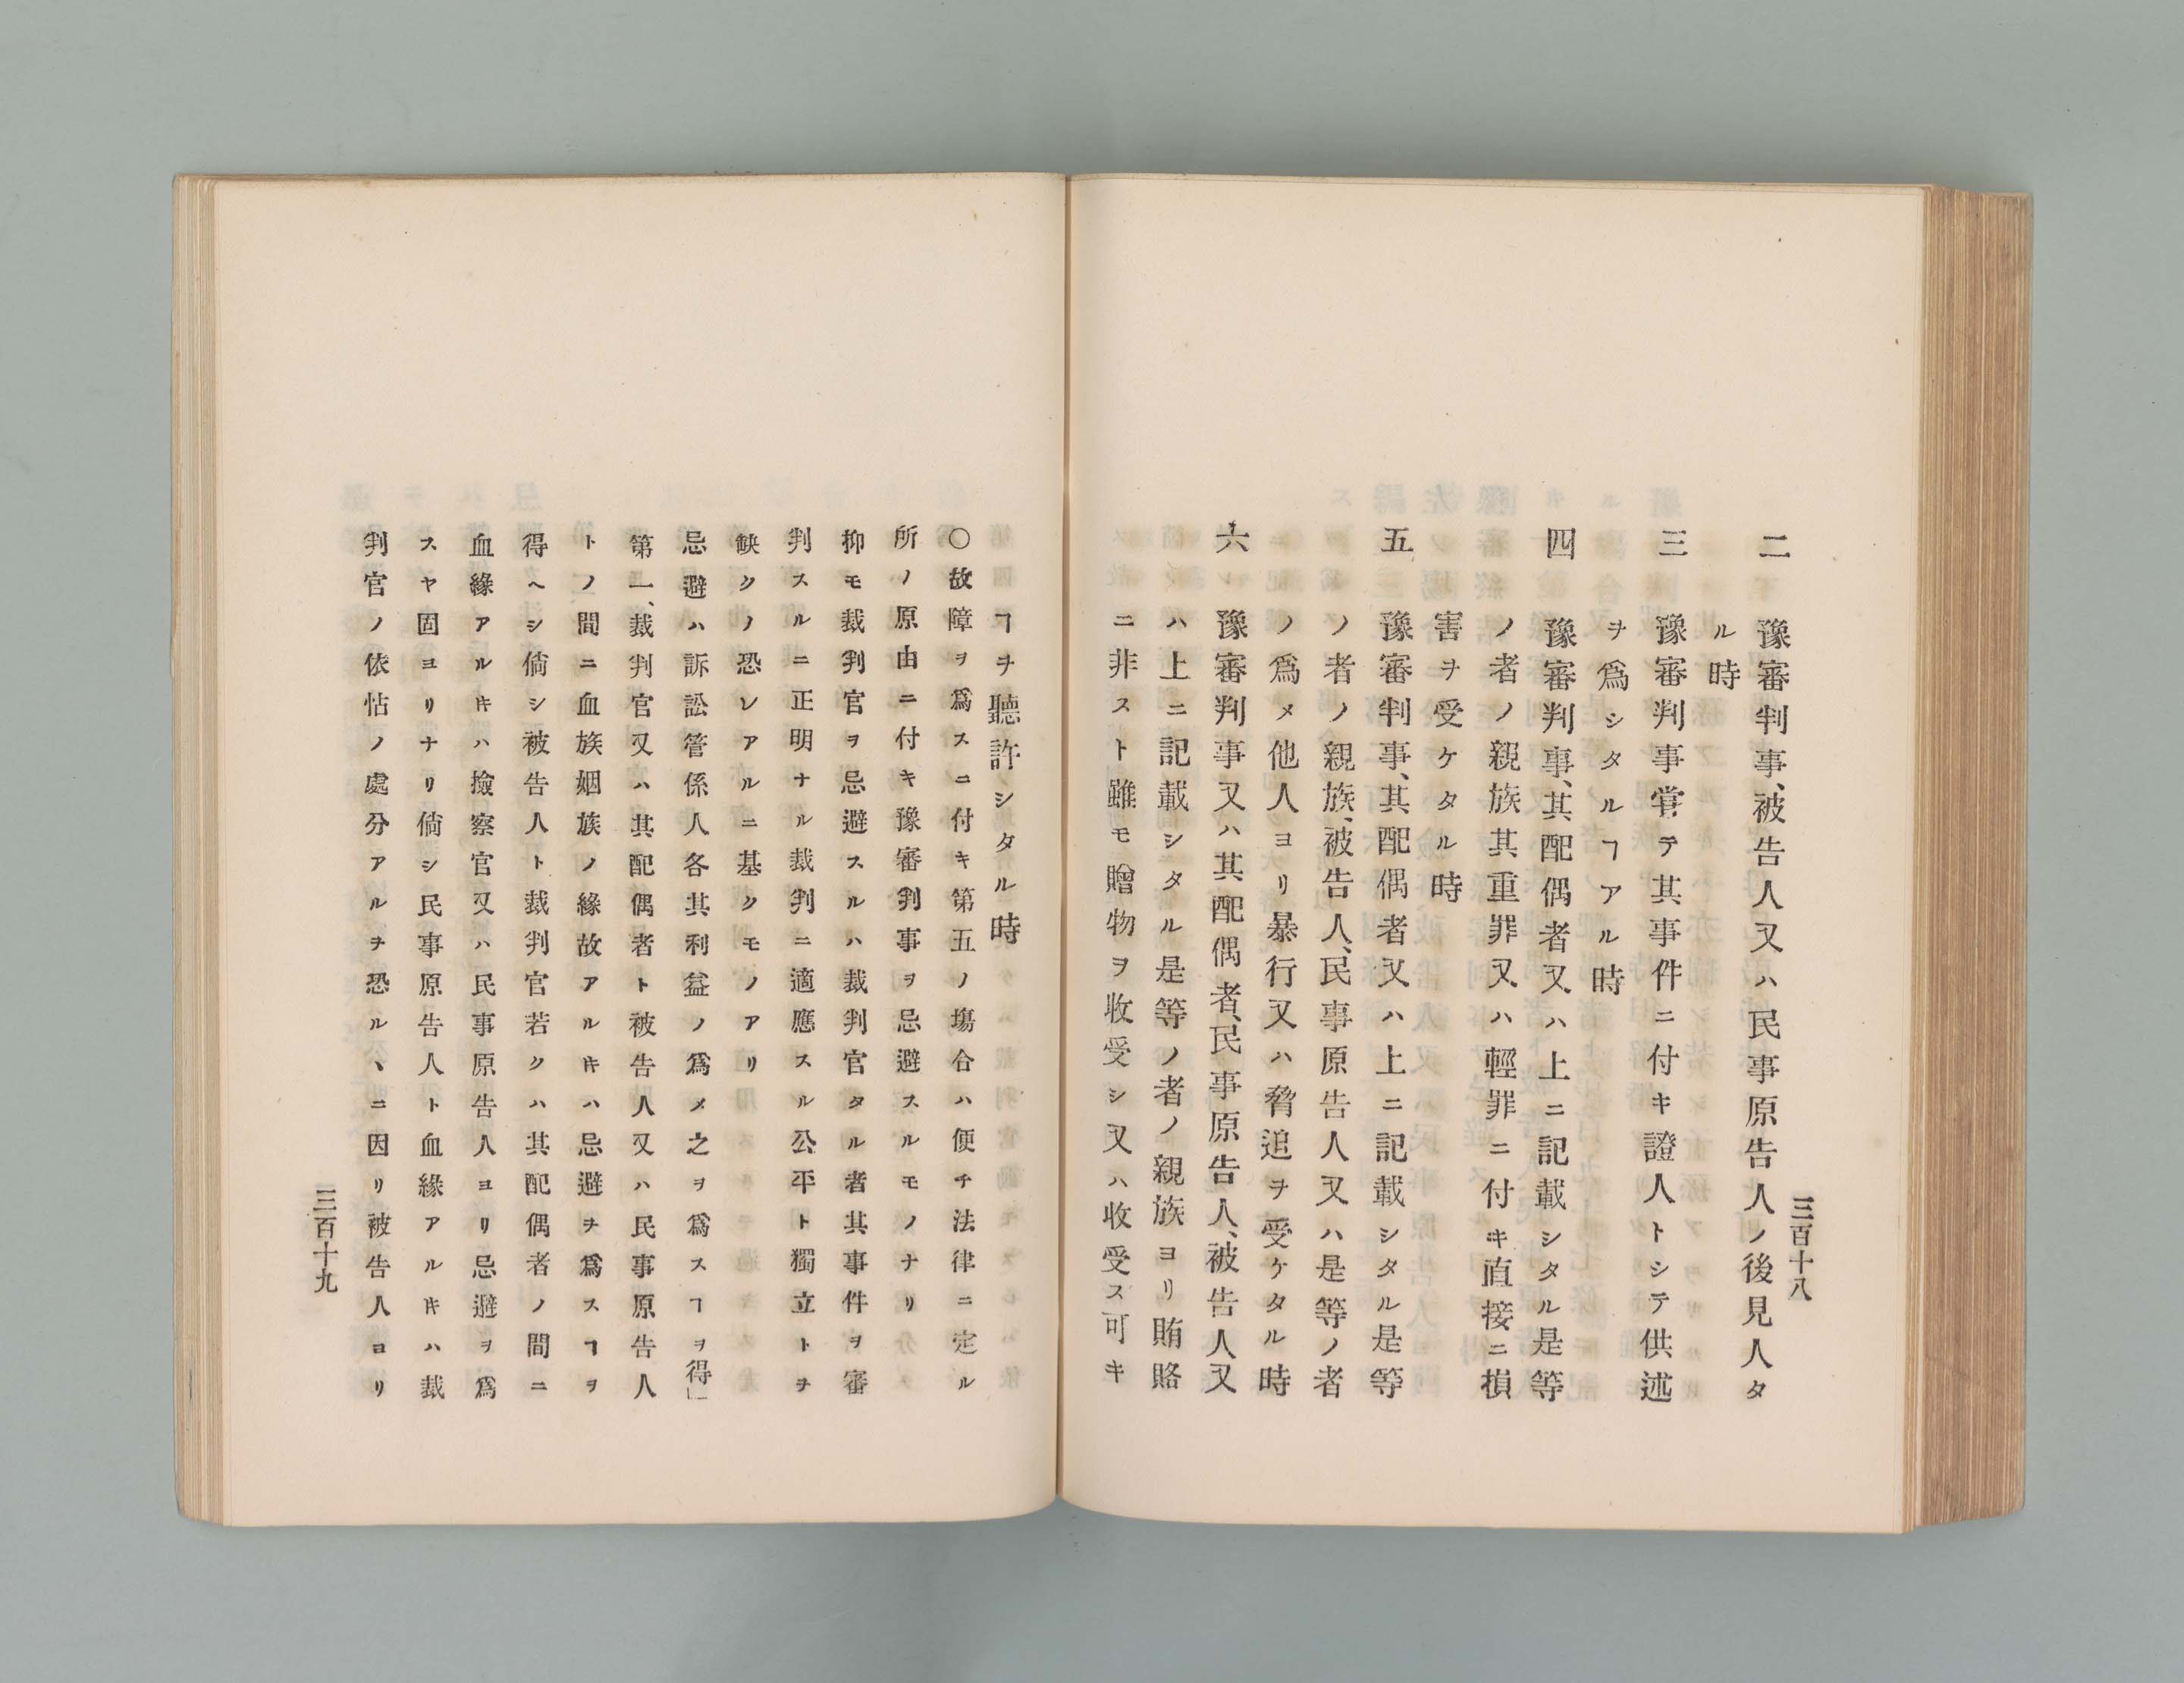 三百十八
二　豫審判事、被告人又ハ民事原告人ノ後見人タ
ル時
三　豫審判事甞テ其事件ニ付キ證人トシテ供述
ヲ爲シタルヿアル時
四　豫審判事、其配偶者又ハ上ニ記載シタル是等
ノ者ノ親族其重罪又ハ輕罪ニ付キ直接ニ損
害ヲ受ケタル時
五　豫審判事、其配偶者又ハ上ニ記載シタル是等
ノ者ノ親族、被告人、民事原告人又ハ是等ノ者
ノ爲メ他人ヨリ暴行又ハ脅迫ヲ受ケタル時
六　豫審判事又ハ其配偶者、民事原告人、被告人又
ハ上ニ記載シタル是等ノ者ノ親族ヨリ賄賂
ニ非スト雖モ贈物ヲ收受シ又ハ收受ス可キ
ヿヲ聽許シタル時
〇故障ヲ爲スニ付キ第五ノ塲合ハ便チ法律ニ定ル
所ノ原由ニ付キ豫審判事ヲ忌避スルモノナリ
抑モ裁判官ヲ忌避スルハ裁判官タル者其事件ヲ審
判スルニ正明ナル裁判ニ適應スル公平ト獨立トヲ
缺クノ恐レアルニ基クモノアリ
忌避ハ訴訟管係人各其利益ノ爲メ之ヲ爲スヿヲ得」
第一、裁判官又ハ其配偶者ト被告人又ハ民事原告人
トノ間ニ血族姻族ノ緣故アルキハ忌避ヲ爲スヿヲ
得ヘシ倘シ被告人ト裁判官若クハ其配偶者ノ間ニ
血緣アルキハ撿察官又ハ民事原告人ヨリ忌避ヲ爲
スヤ固ヨリナリ倘シ民事原告人ト血緣アルキハ裁
判官ノ依怙ノ處分アルヲ恐ルヽニ因リ被告人ヨリ
三百十九